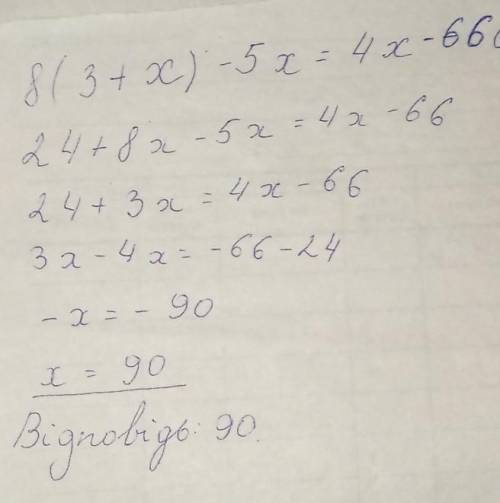 8(3+x)-5x=4x-66
24+8x-5x=4x-66
24+3x=4x-66
3x-4x=-66-24
-x=-90
x=90
Відповідь: 90.